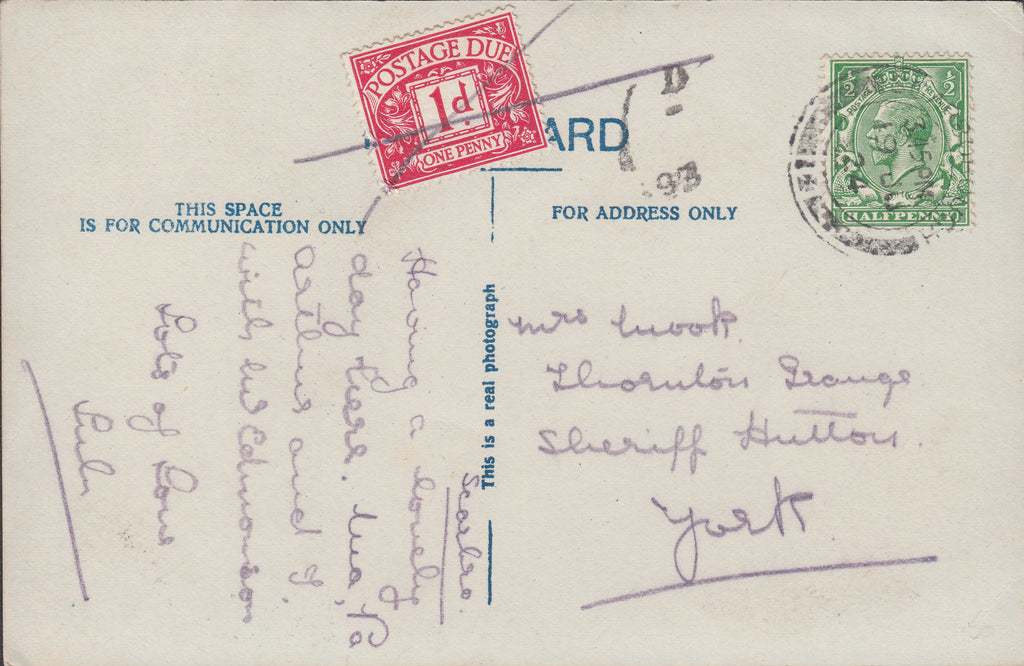 POSTAGE DUE
1d
ONE PENNY
ARD
D
93
½ ½
POSTAGE REVENUE
HALFPENNY
3 15 PM
19 JU
THIS SPACE
IS FOR COMMUNICATION ONLY
FOR ADDRESS ONLY
This is a real photograph
Scarbro.
Having a lovely
day here. Ma, Pa
Arthur and I.
with Mr Edmonson
Lots of Love
Mrs Mook
Thornton Grange
Sheriff Hutton.
York.